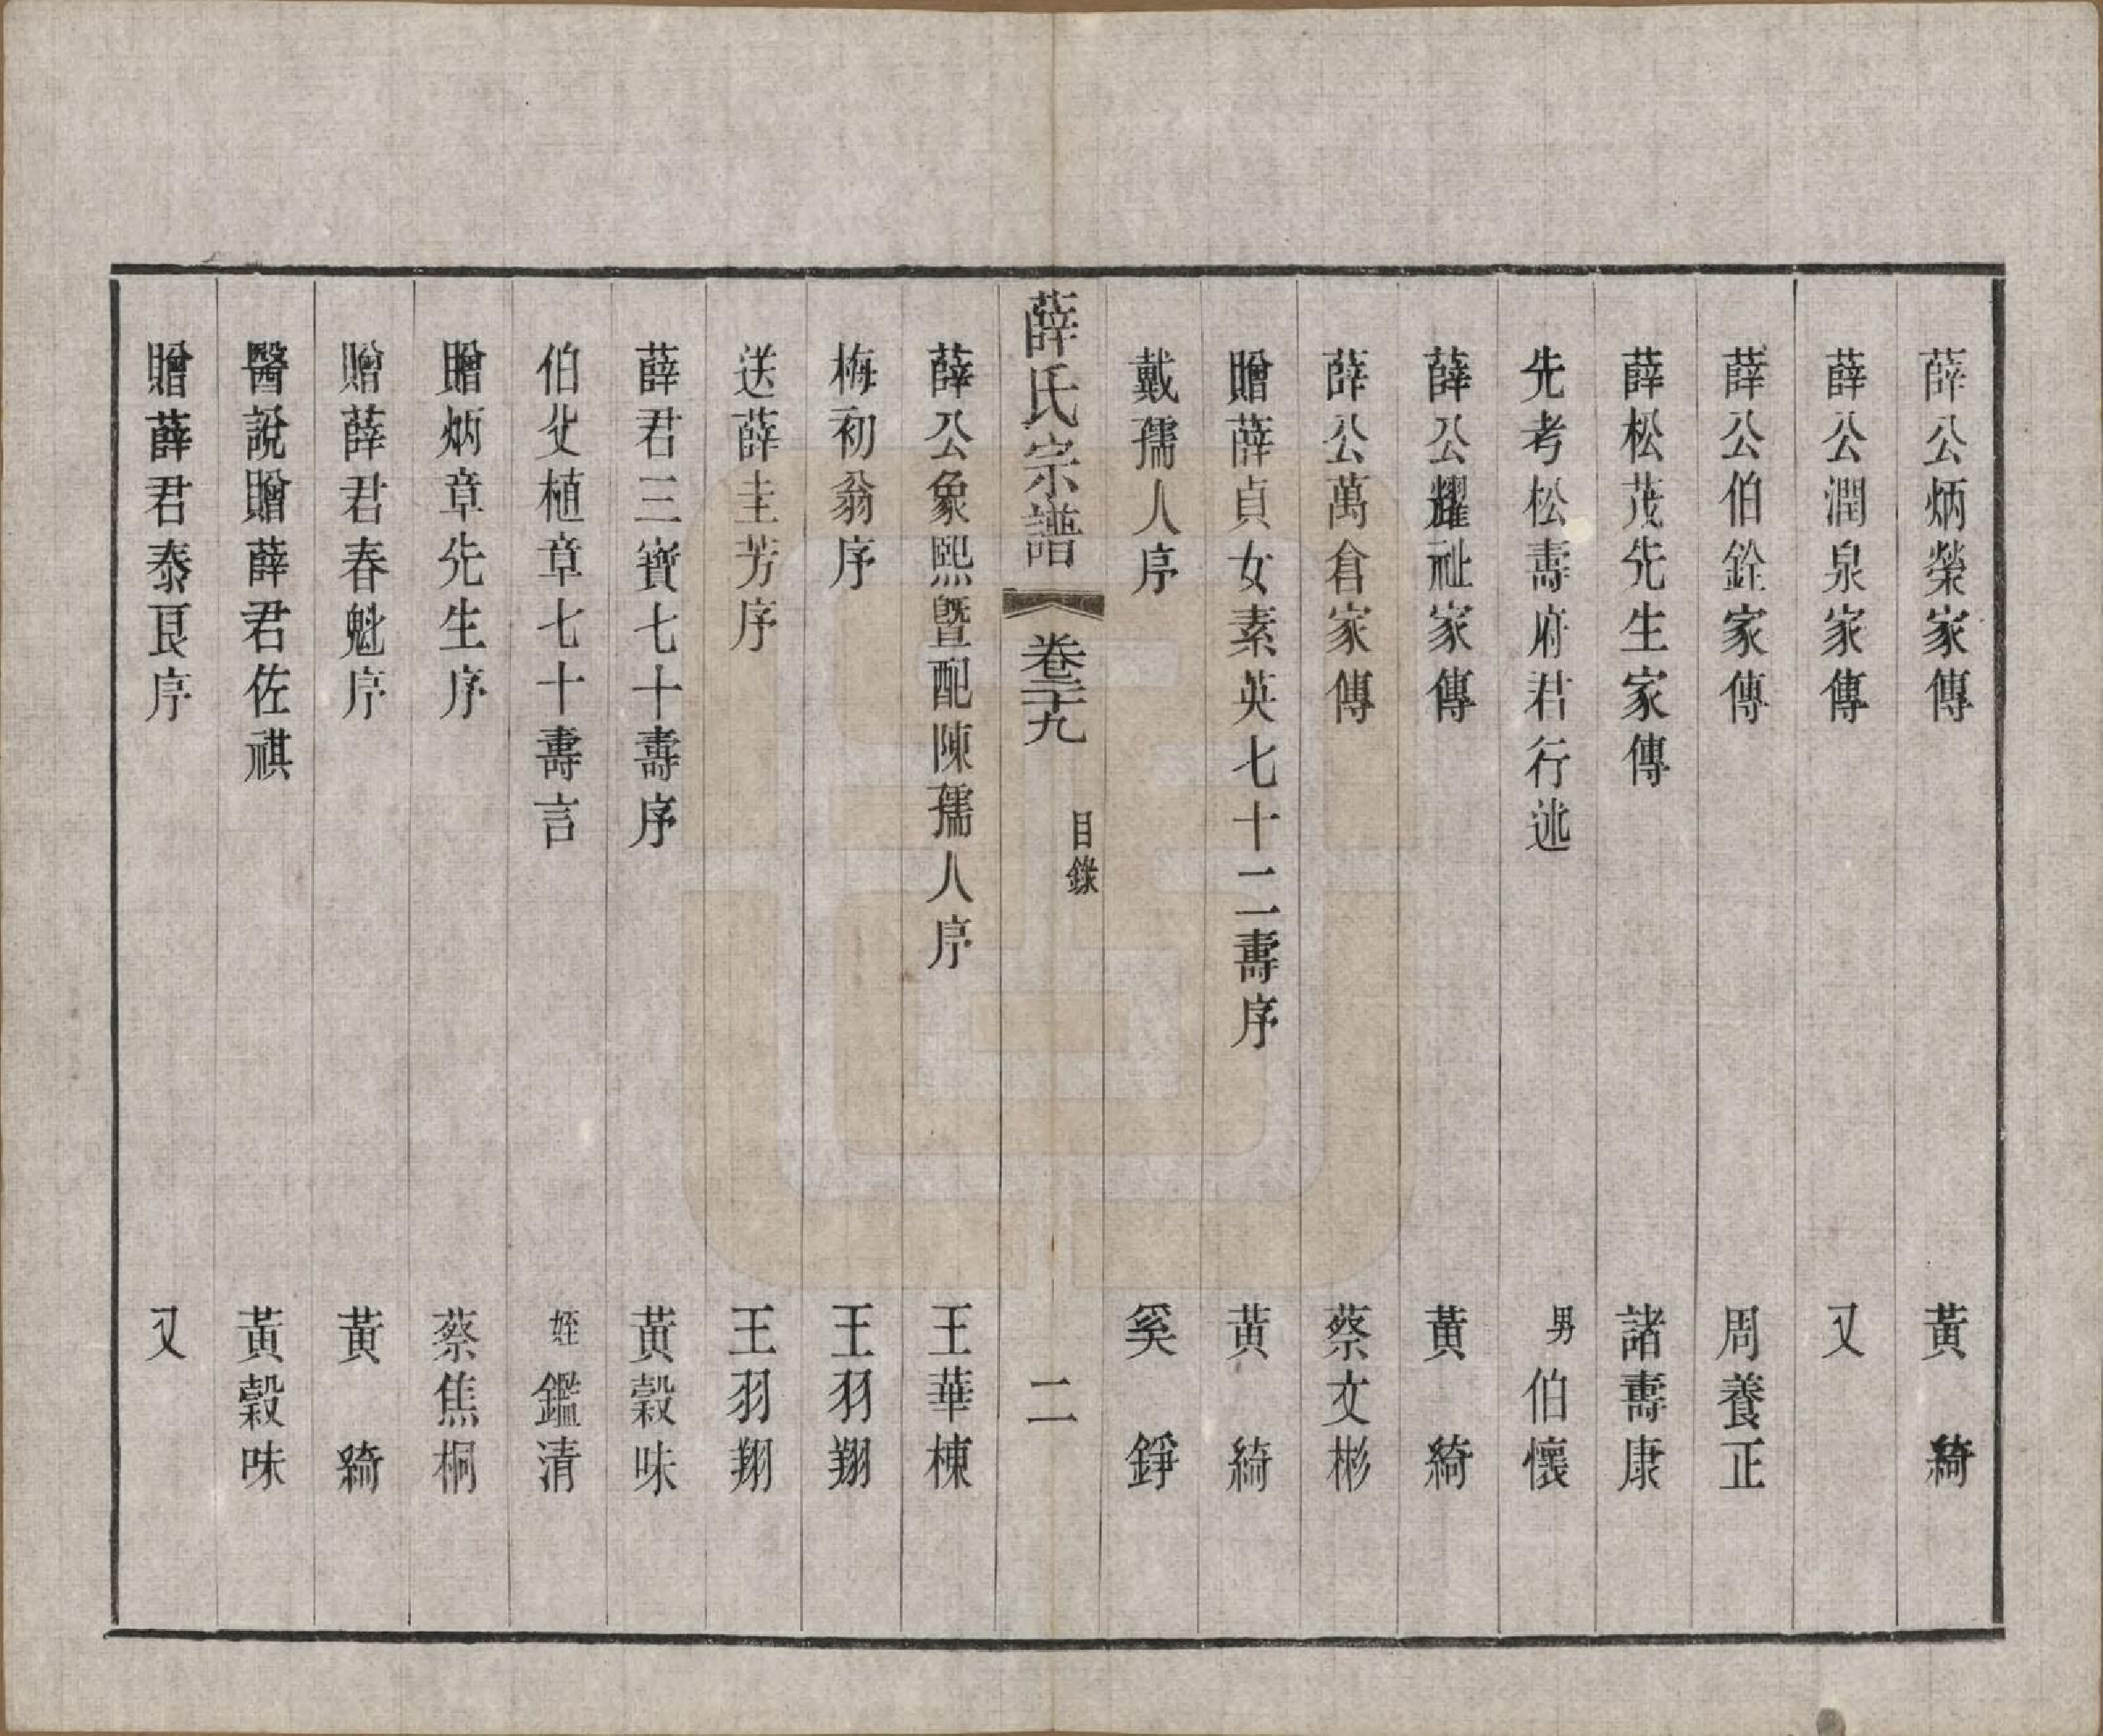 薛公炳榮家傳 黃綺
薛公潤泉家傳 又
薛公伯銓家傳 周養正
薛松茂先生家傳 諸壽康
先考松壽府君行述 男伯懷
薛公耀祉家傳 黃綺
薛公萬倉家傳 蔡文彬
贈薛貞女素英七十二壽序 黃綺
戴孺人序 奚錚
薛氏宗譜 卷二十九 目錄 二
薛公象熙暨配陳孺人序 王華棟
梅初翁序 王羽翔
送薛圭芳序 王羽翔
薛君三寶七十壽序 黃穀味
伯父植章七十壽言 姪鑑清
贈炳章先生序 蔡焦桐
贈薛君春魁序 黃綺
醫說贈薛君佐祺 黃穀味
贈薛君泰艮序 又